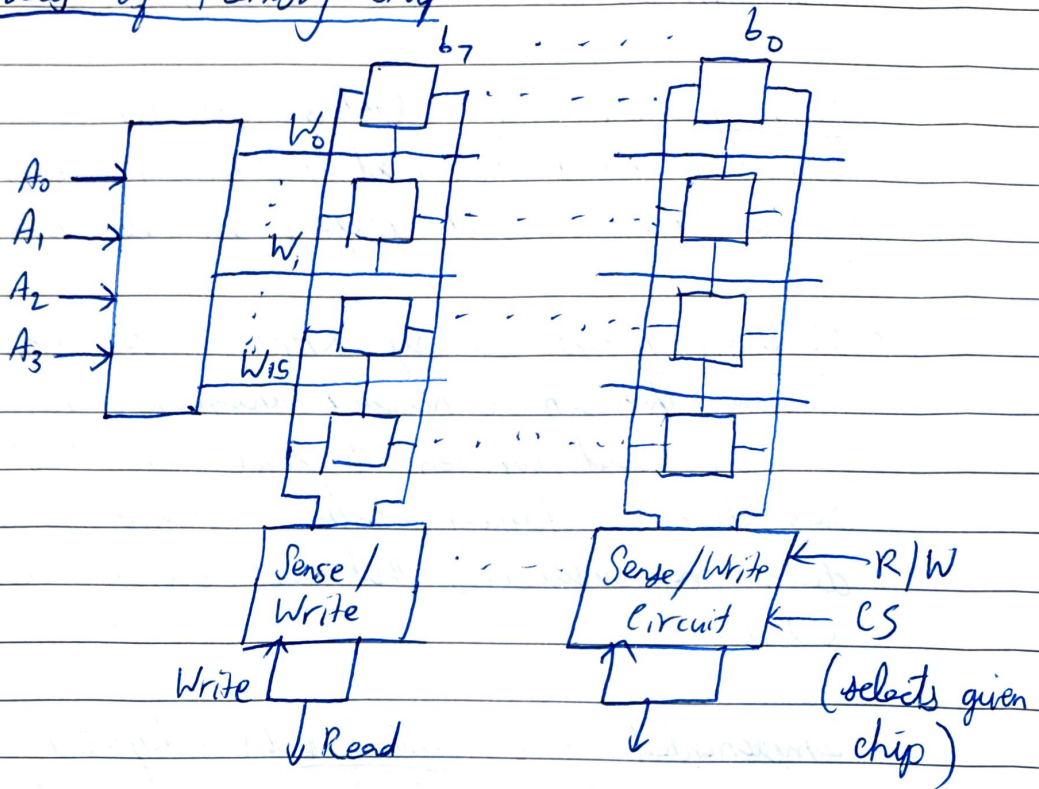 b7 . . . . . b0
W0
A0
A1
Wi
A2
A3
W15
Sense / Write
Sense/Write Circuit
R/W
CS
(selects given chip)
Write
Read